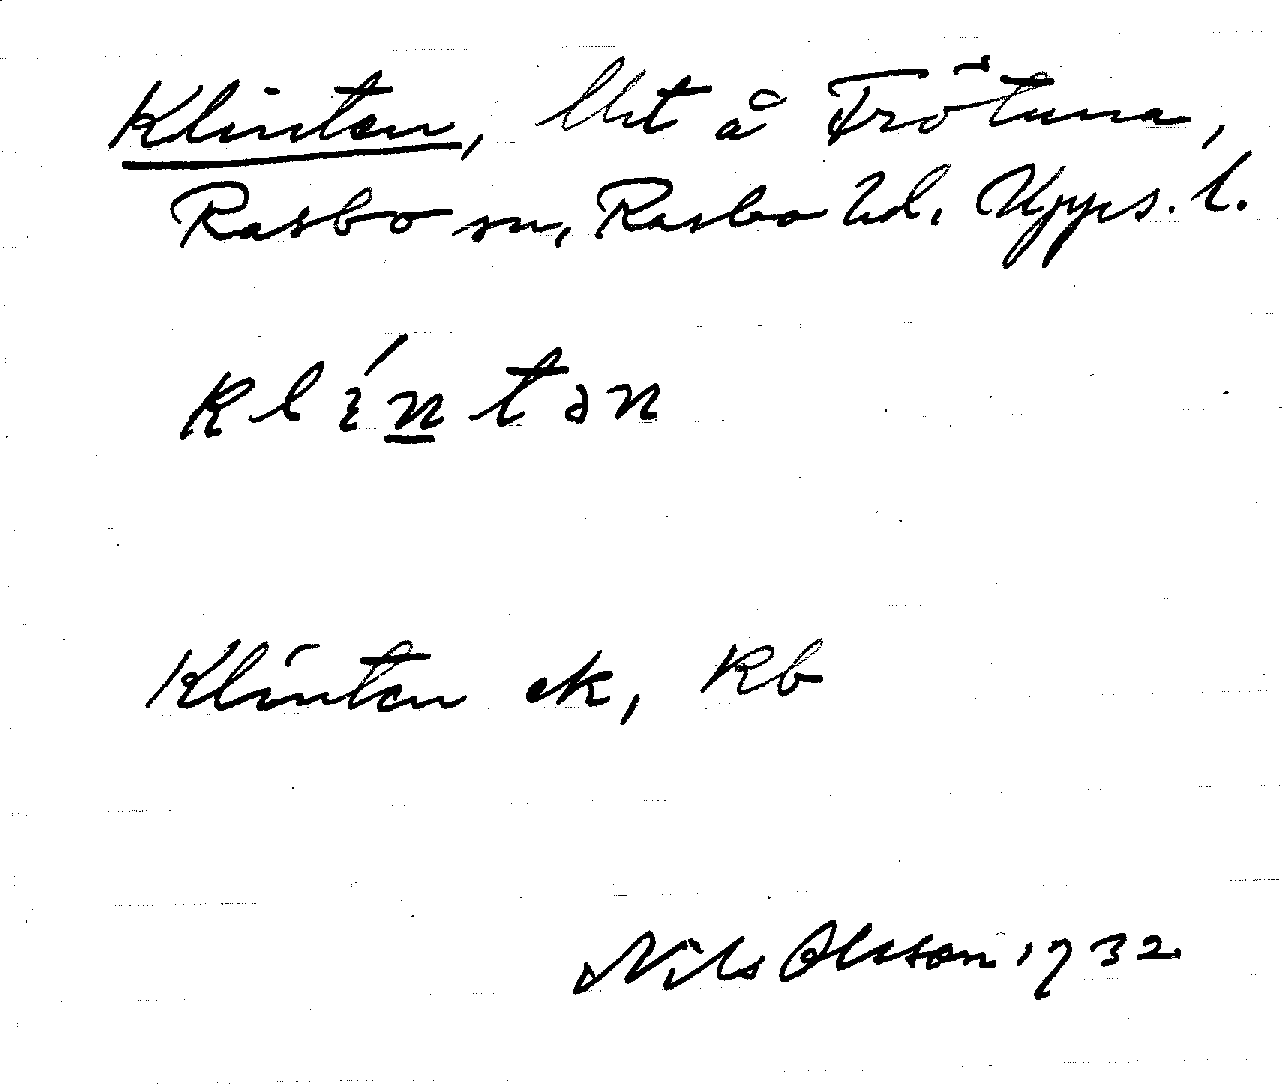 Klinten, lht å Frötuna,
Rasbo sn, Rasbo hd. Upps. l.
klíntən
Klinten ek, Rb
Nils Olsson 1932